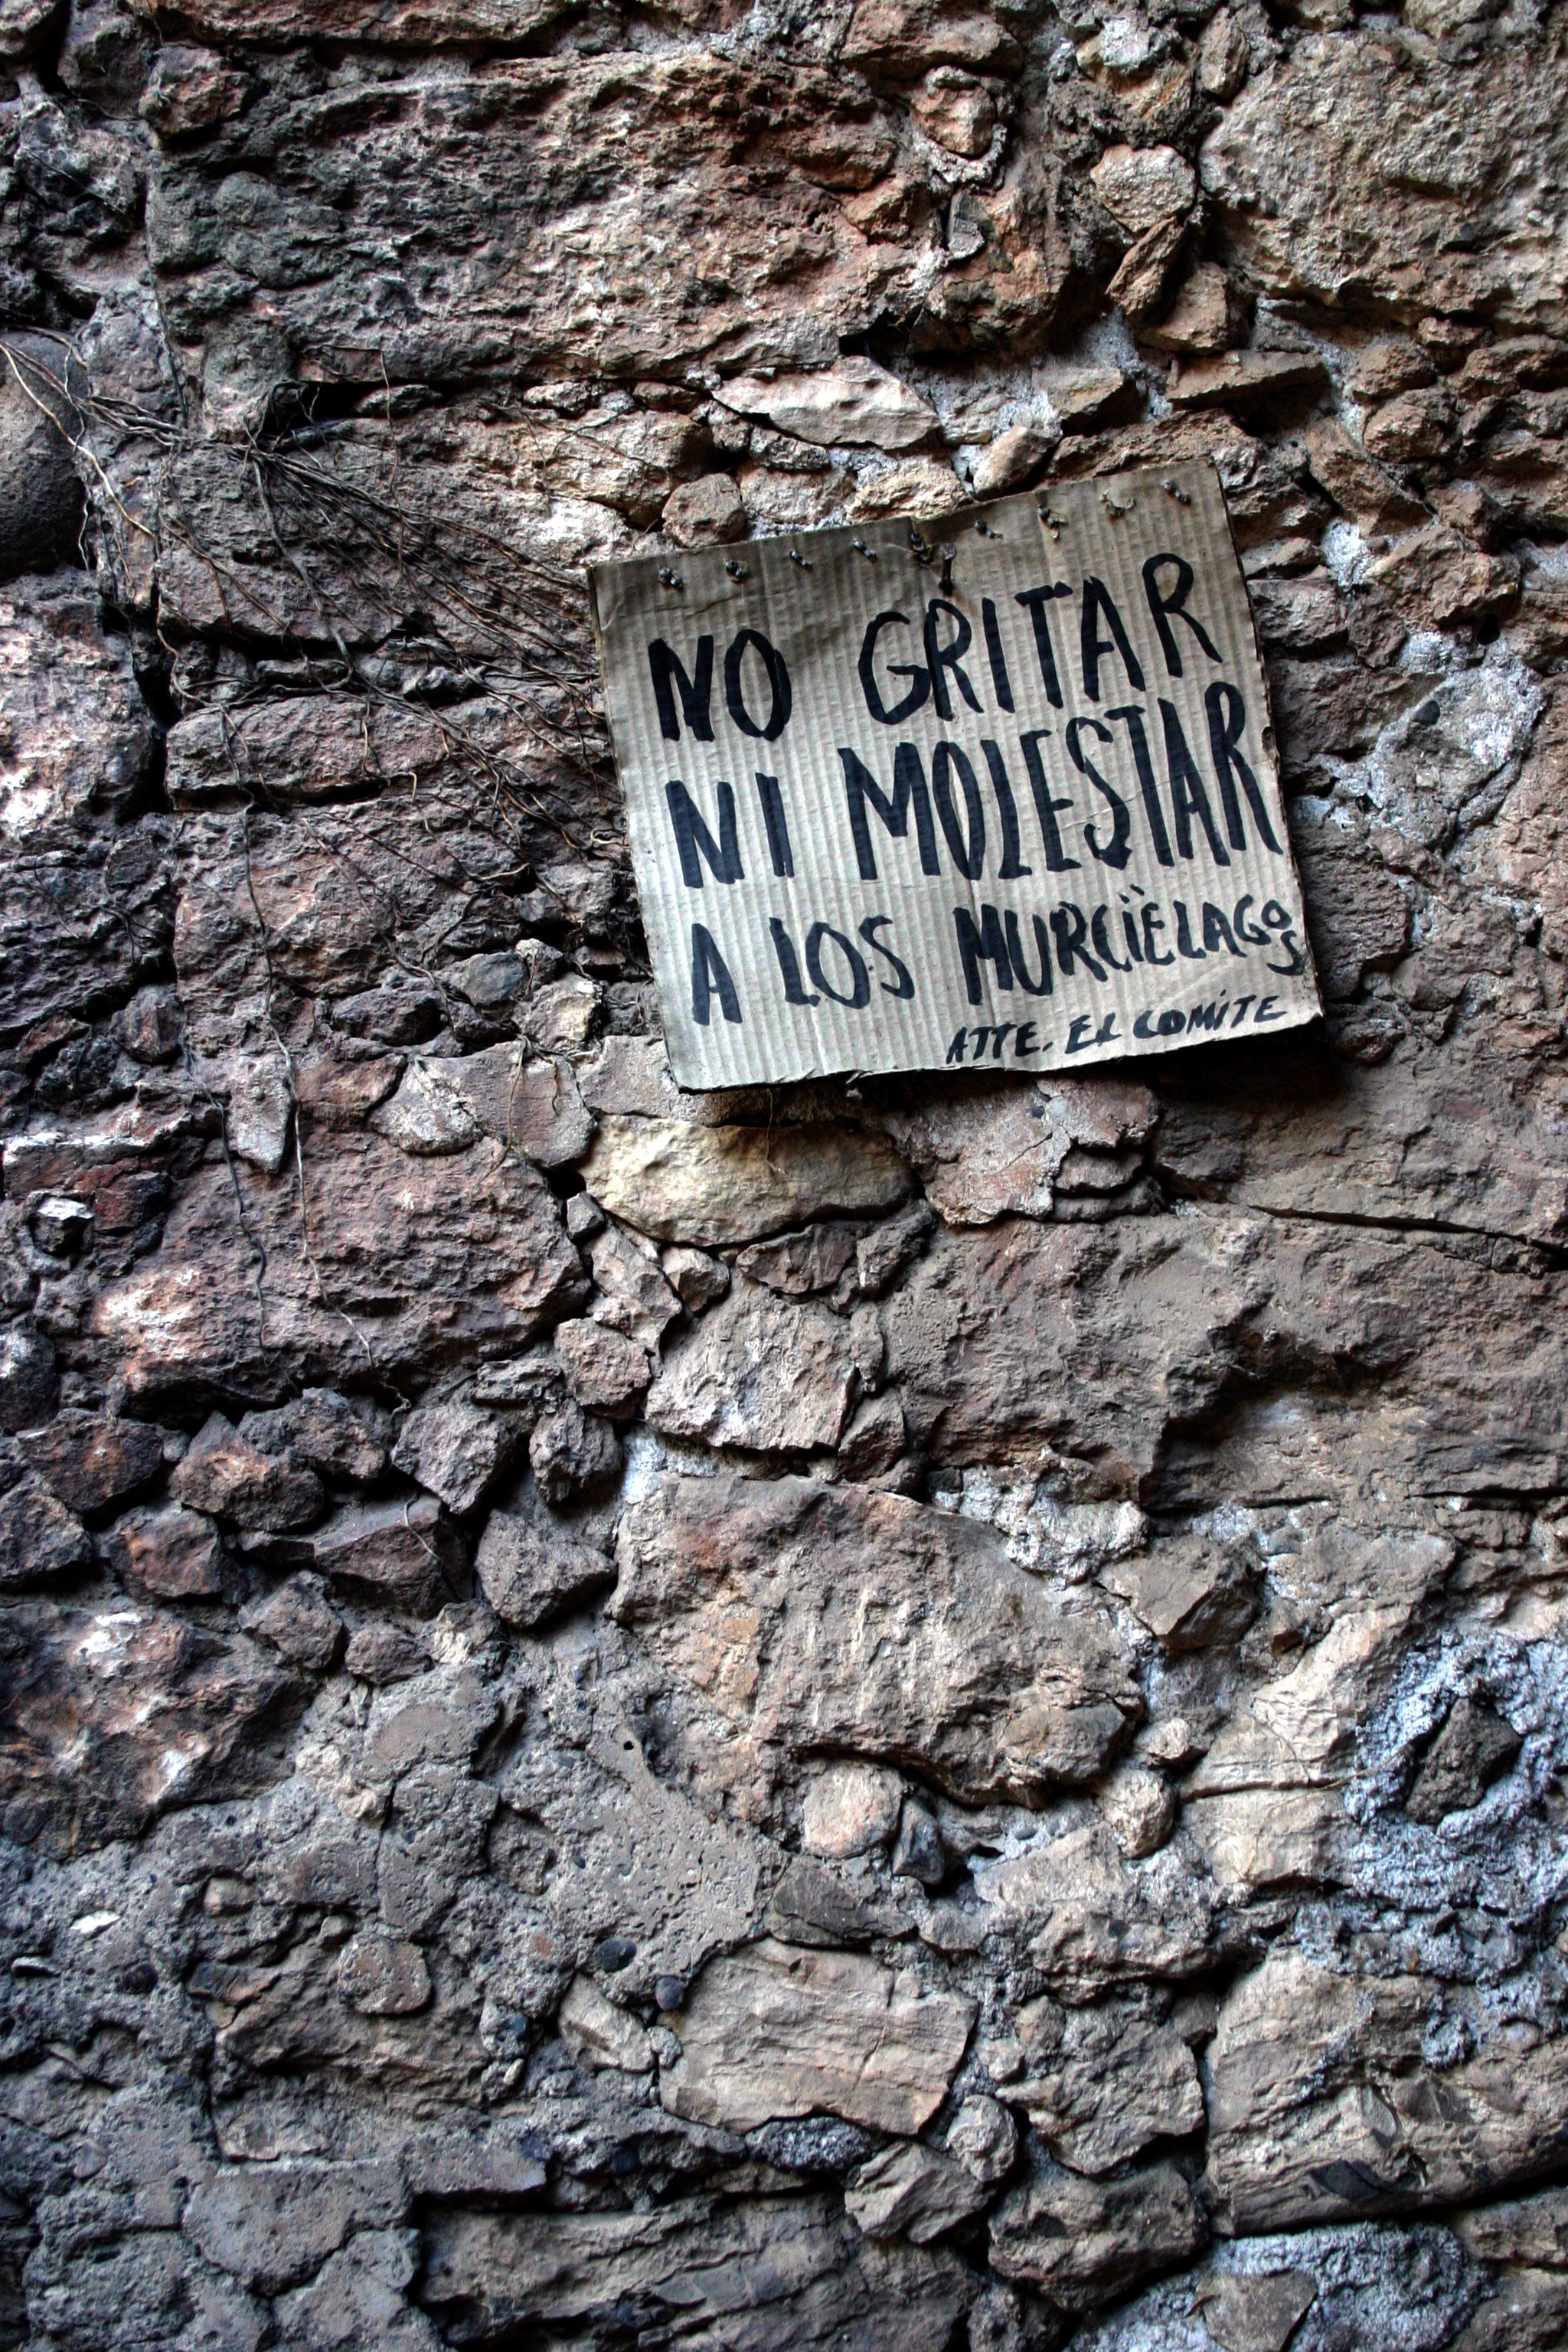 NO GRITAR
NI MOLESTAR
A LOS MURCIÈLAGOS
ATTE. EL COMITE